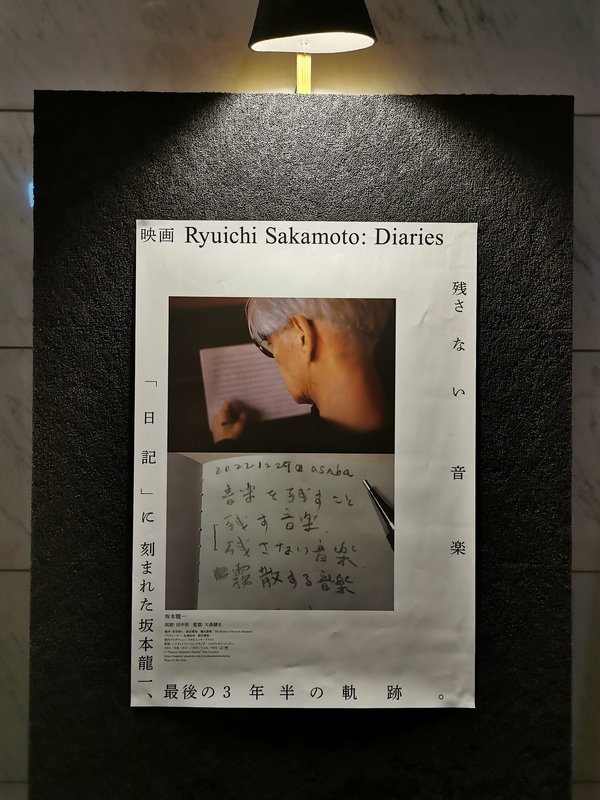 映画 Ryuichi Sakamoto: Diaries
残さない音楽
20221229@asaba
音楽を残すこと
残す音楽
残さない音楽
霧散する音楽
「日記」に刻まれた坂本龍一、
最後の3年半の軌跡。
坂本龍一
朗読：田中泯 監督：大森健生